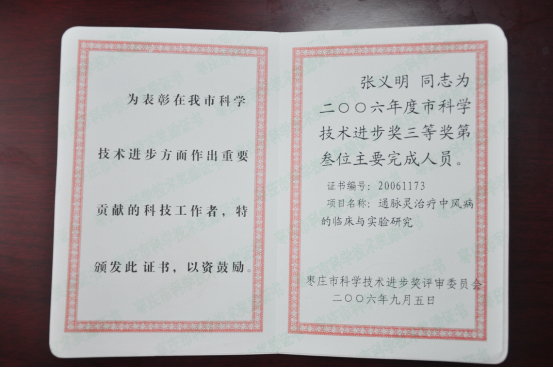 为表彰在我市科学
技术进步方面作出重要
贡献的科技工作者，特
颁发此证书，以资鼓励。
张义明 同志为
二〇〇六年度市科学
技术进步奖三等奖第
叁位主要完成人员。
证书编号：20061173
项目名称：通脉灵治疗中风病
的临床与实验研究
枣庄市科学技术进步奖评审委员会
二〇〇六年九月五日